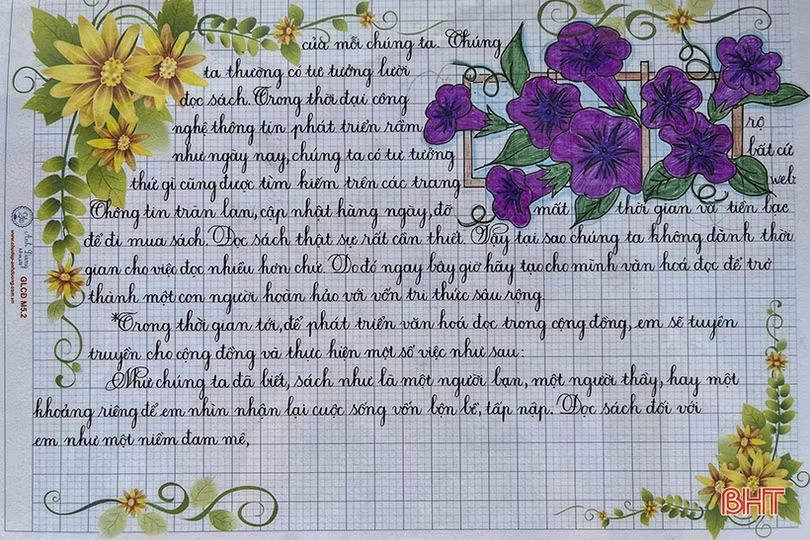 của mỗi chúng ta. Chúng
ta thường có tư tưởng lười
đọc sách. Trong thời đại công
nghệ thông tin phát triển rầm rộ
như ngày nay, chúng ta có tư tưởng bất cứ
thứ gì cũng được tìm kiếm trên các trang web.
Thông tin tràn lan, cập nhật hàng ngày, đỡ mất thời gian và tiền bạc
để đi mua sách. Đọc sách thật sự rất cần thiết. Vậy tại sao chúng ta không dành thời
gian cho việc đọc nhiều hơn chứ. Do đó ngay bây giờ hãy tạo cho mình văn hoá đọc để trở
thành một con người hoàn hảo với vốn tri thức sâu rộng.
*Trong thời gian tới, để phát triển văn hoá đọc trong cộng đồng, em sẽ tuyên
truyền cho cộng đồng và thực hiện một số việc như sau:
Như chúng ta đã biết, sách như là một người bạn, một người thầy, hay một
khoảng riêng để em nhìn nhận lại cuộc sống vốn bộn bề, tấp nập. Đọc sách đối với
em như một niềm đam mê,
GLCD M5.2
BHT